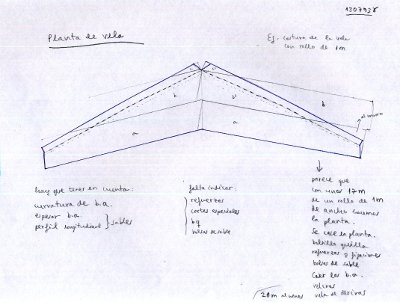 130793
Planta de vela
Ej. costura de la vela
con rollo de 1m
b
b
a
a
hay que tener en cuenta:
curvatura de b.a.
espesor b.a.
perfil longitudinal
sables
falta indicar:
refuerzos
cortes especiales
bolsa de sable
parece que
con unos 17m
de un rollo de 1m
de ancho
la planta.
Se cose la planta.
refuerzos y fijaciones
bolsas de sable
Coser las b.a.
velcros